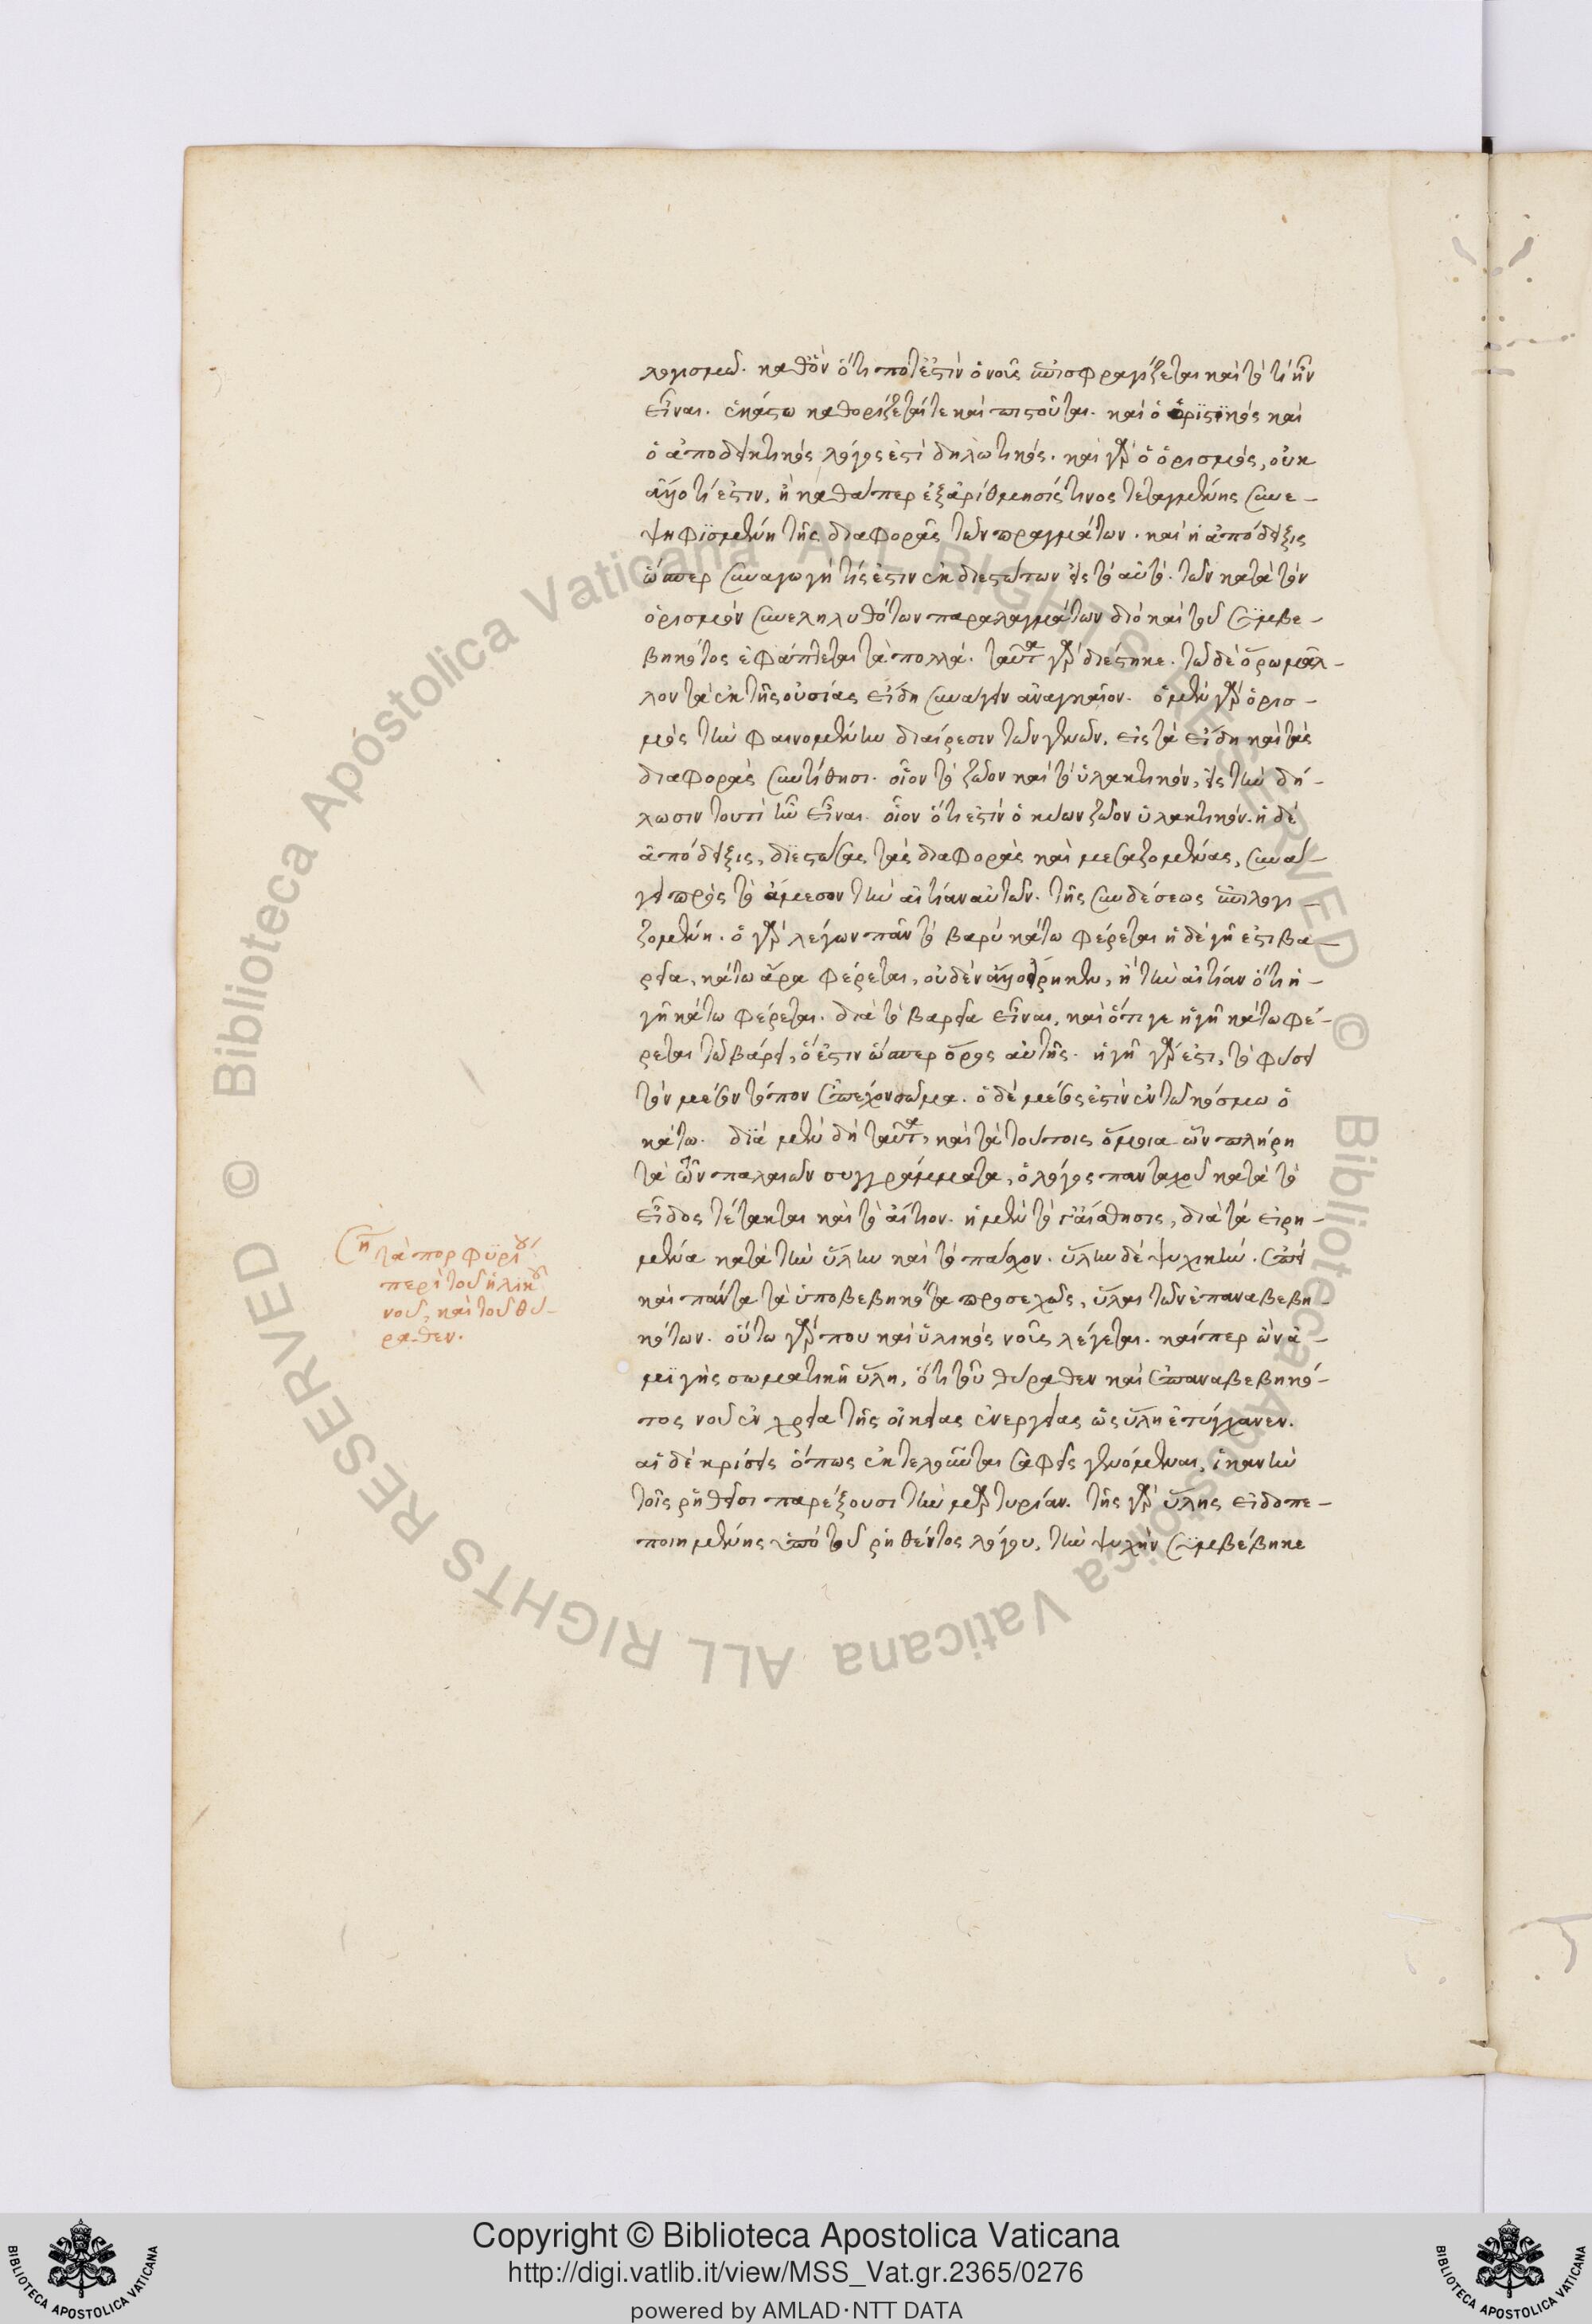 λογισμοῦ. καθ' ὃν ὅτι ποτ' ἐστὶν ὁ νοῦς ἐπισφραγίζεται καὶ τὸ τί ἦν
εἶναι. ἑκάστω καθορίζεταί τε καὶ πιστοῦται. καὶ ὁ ὁριστικὸς καὶ
ὁ ἀποδεικτικὸς λόγος ἐστὶ δηλωτικός. καὶ γὰρ ὁ ὁρισμὸς, οὐκ
ἄλλο τί ἐστιν, ἢ καθάπερ ἐξαρίθμησίς τινος τεταγμένης συνε-
ψηφισμένη τῆς διαφορᾶς τῶν πραγμάτων. καὶ ἡ ἀπόδειξις
ὥσπερ συναγωγή τίς ἐστιν ἐκ διεστώτων εἰς τὸ αὐτό. τῶν κατὰ τὸν
ὁρισμὸν συνεληλυθότων παραλαγμάτων διὸ καὶ τοῦ συμβε-
βηκότος ἐφάπτεται τὰ πολλά. ταῦτα γὰρ διέστηκε. τῶ δὲ ὅρω μᾶλ-
λον τὰ ἐκ τῆς οὐσίας εἴδη συνάγειν ἀναγκαῖον. ὁ μὲν γὰρ ὁρισ-
μὸς τὴν φαινομένην διαίρεσιν τῶν γενῶν, εἰς τὰ εἴδη καὶ τὰς
διαφορὰς συντίθησι. οἷον τὸ ζῶον καὶ τὸ ὑλακτικὸν, εἰς τὴν δή-
λωσιν τουτὶ ἦν εἶναι. οἷον ὅτι ἐστὶν ὁ κύων ζῶον ὑλακτικόν. ἡ δὲ
ἀπόδειξις, διεστώσας τὰς διαφορὰς καὶ μεσαζομένας, συνά-
γει πρὸς τὸ ἄμεσον τὴν αἰτίαν αὐτῶν. τῆς συνδέσεως ἐπιλογι-
ζομένη. ὁ γὰρ λέγων πᾶν τὸ βαρὺ κάτω φέρεται ἡ δὲ γῆ ἐστι βα-
ρεῖα, κάτω ἄρα φέρεται, οὐδὲν ἄλλο εἴρηκεν, ἢ τὴν αἰτίαν ὅτι ἡ
γῆ κάτω φέρεται. διὰ τὸ βαρεῖα εἶναι, καὶ ὅτι γε ἡ γῆ κάτω φέ-
ρεται τῶ βάρει, ὅ ἐστιν ὥσπερ ὅρος αὐτῆς. ἡ γῆ γάρ ἐστι, τὸ φύσει
τὸν μέσον τόπον ἐπέχον σῶμα. ὁ δὲ μέσος ἐστὶν ἐν τῶ κόσμω ὁ
κάτω. διὰ μὲν δὴ ταῦτα, καὶ τὰ τούτοις ὅμοια ὧν πλήρη
τὰ τῶν παλαιῶν συγγράμματα, ὁ λόγος πανταχοῦ κατὰ τὸ
εἶδος τέτακται καὶ τὸ αἴτιον. ἡ μέν τοι αἴσθησις, διὰ τὰ εἰρη-
μένα κατὰ τὴν ὕλην καὶ τὸ πάσχον. ὕλην δὲ ψυχικήν. ἐπεὶ
καὶ πάντα τὰ ὑποβεβηκότα προσεχῶς, ὕλαι τῶν ἐπαναβεβη-
κότων. οὕτω γάρ που καὶ ὑλικὸς νοῦς λέγεται. καίπερ ὢν ἀ-
μιγὴς σωματικῆ ὕλη, ὅτι τοῦ θύραθεν καὶ ἐπαναβεβηκό-
τος νοῦ ἐν χρεία τῆς οἰκείας ἐνεργείας ὡς ὕλη ἐτύγχανεν.
αἱ δὲ κρίσεις ὅπως ἐκτελοῦνται σαφεῖς γενόμεναι, ἱκανὴν
τοῖς ῥηθεῖσι παρέξουσι τὴν μαρτυρίαν. τῆς γὰρ ὕλης εἰδοπε-
ποιημένης ὑπὸ τοῦ ῥηθέντος λόγου, τὴν ψυχὴν συμβέβηκε
ση τὰ πορφυρίου
περὶ τοῦ ὑλικοῦ
νοῦ, καὶ τοῦ θύ-
ραθεν.
Copyright © Biblioteca Apostolica Vaticana
http://digi.vatlib.it/view/MSS_Vat.gr.2365/0276
powered by AMLAD·NTT DATA
BIBLIOTECA APOSTOLICA VATICANA
BIBLIOTECA APOSTOLICA VATICANA
© Biblioteca Apostolica Vaticana ALL RIGHTS RESERVED
© Biblioteca Apostolica Vaticana ALL RIGHTS RESERVED